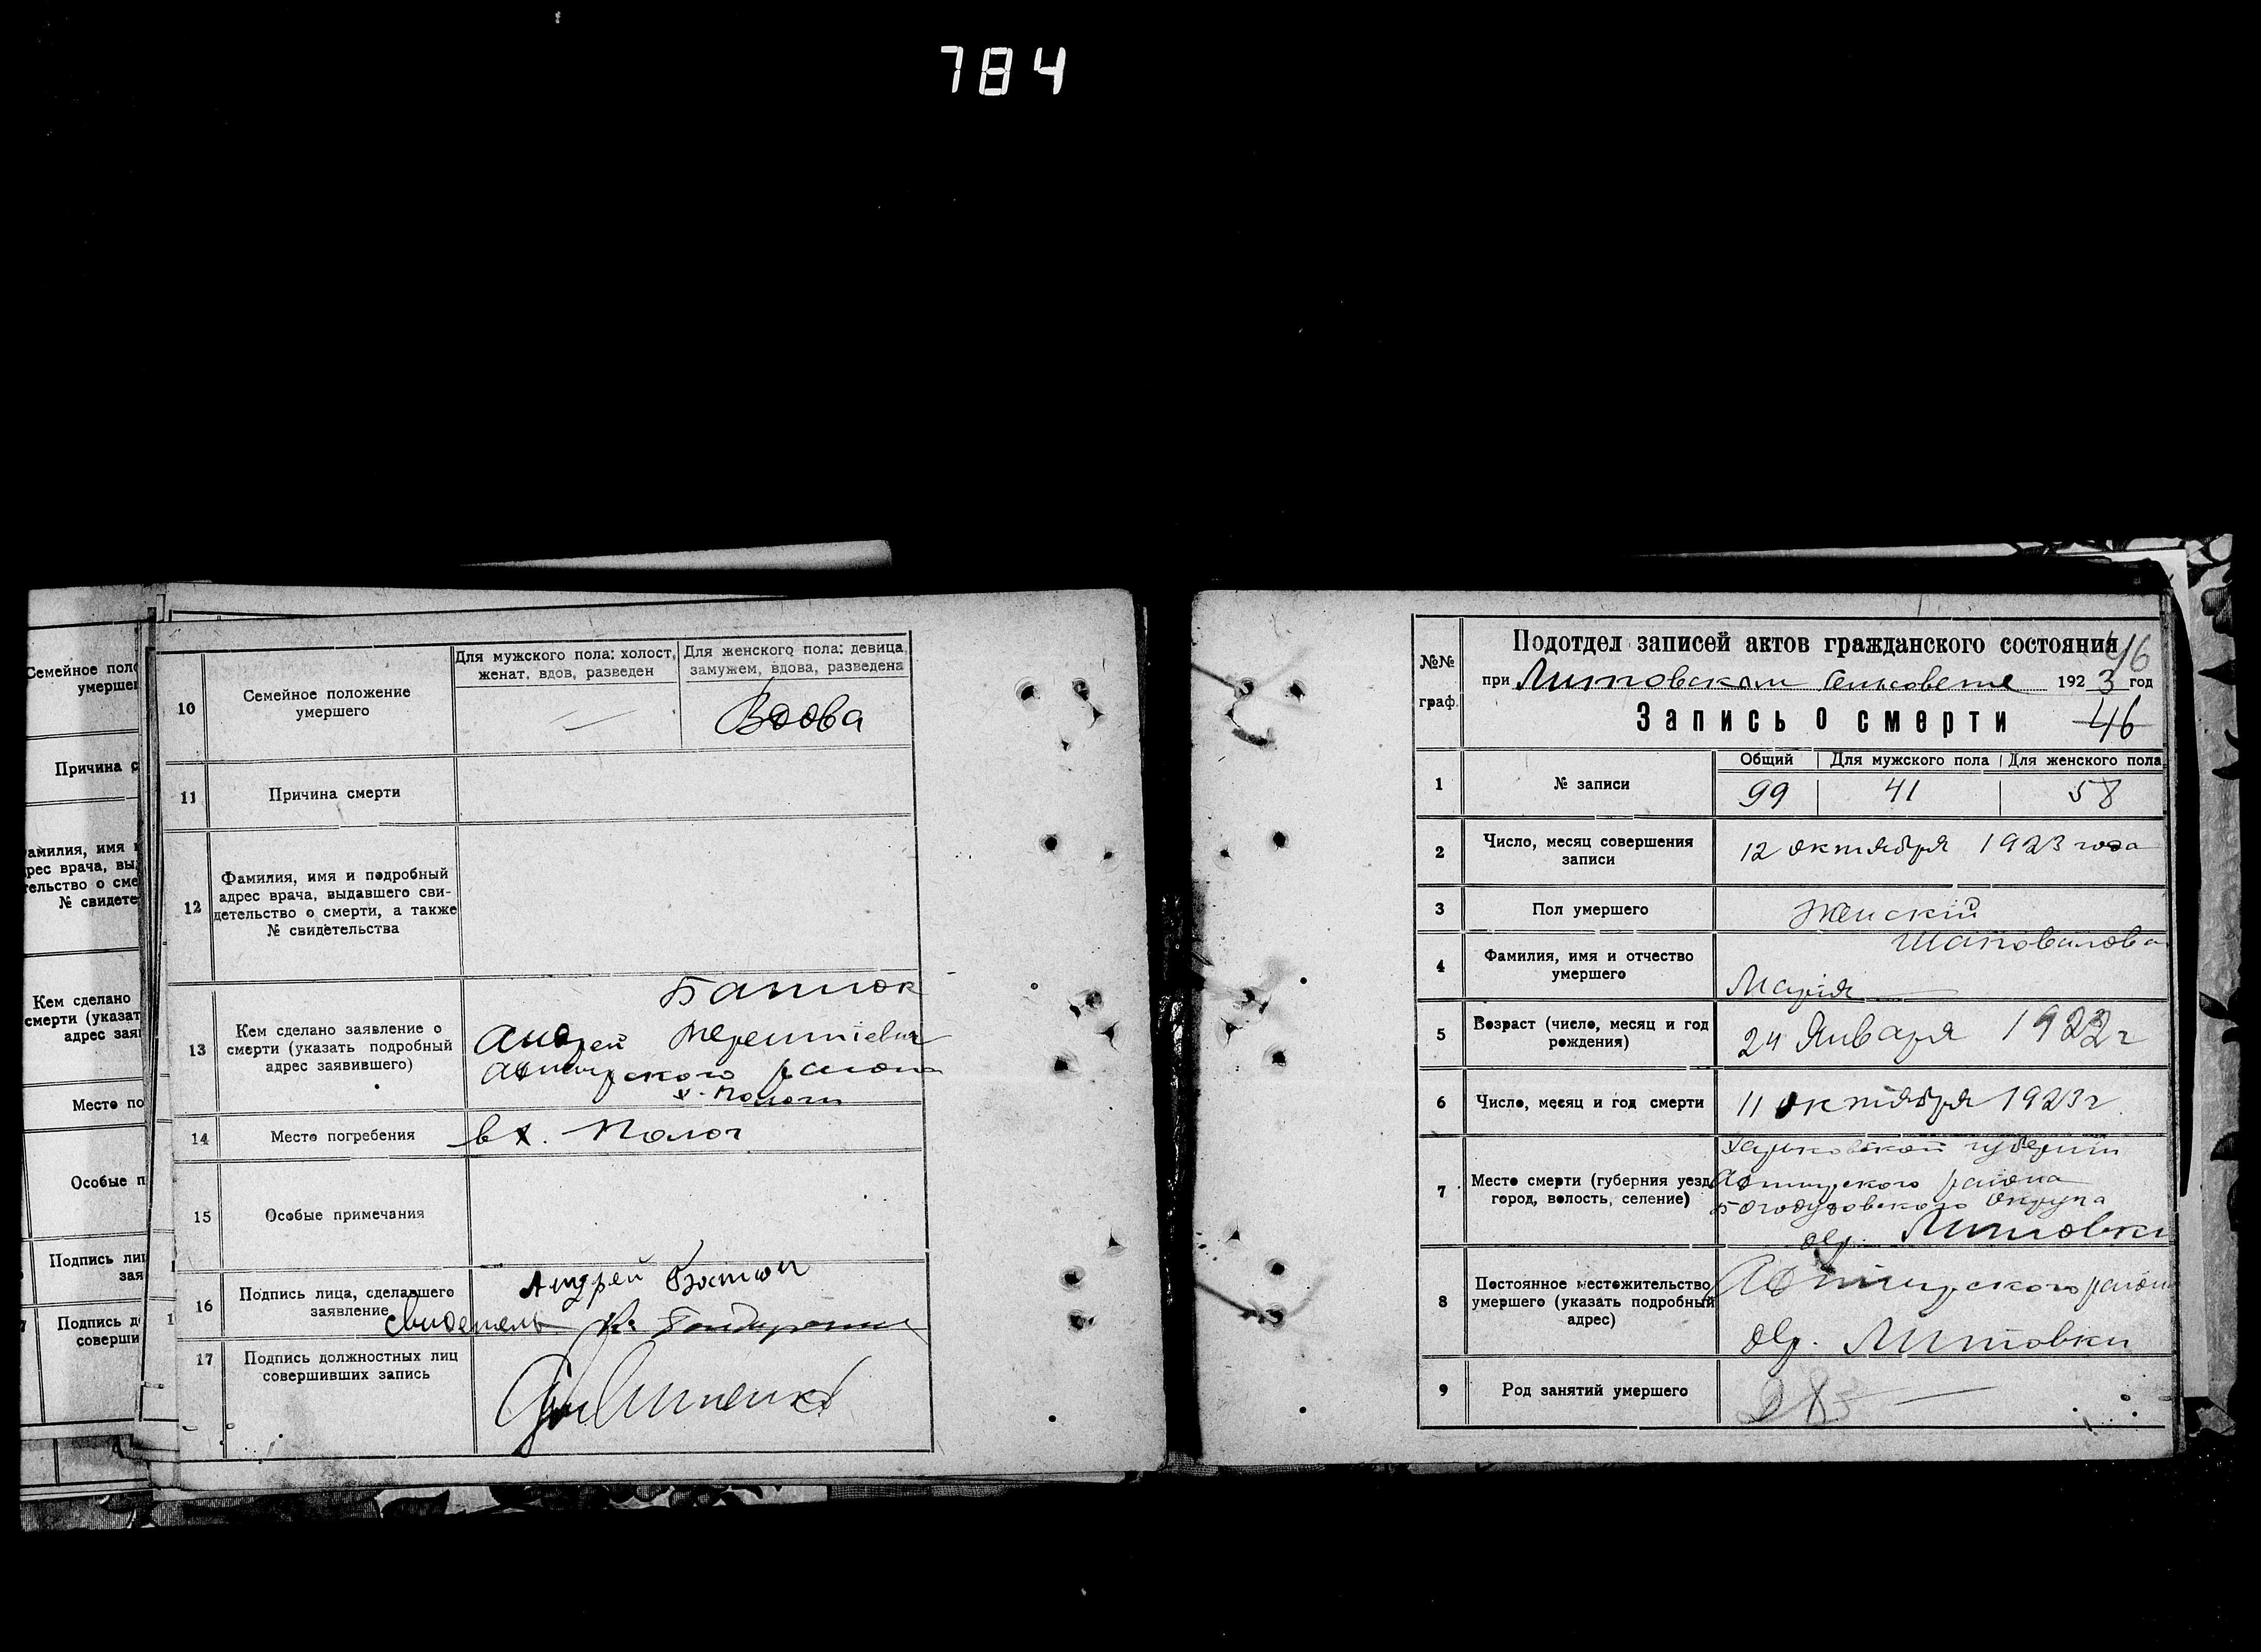 784
Семейное поло
умершег
Причина с
амилия, имя и
рес врача, выд
тельство о сме
№ свидете
Кем сделано
смерти (указат
адрес зая
Место по
Особые п
Подпись ли
зая
Подпись д
соверши
10
Семейное положение
умершего
Для мужского пола: холост,
женат, вдов, разведен
Для женского пола: девица,
замужем, вдова, разведена
—
Вдова
11
Причина смерти
12
Фамилия, имя и подробный
адрес врача, выдавшего сви-
детельство о смерти, а также
№ свидетельства
13
Кем сделано заявление о
смерти (указать подробный
адрес заявившего)
Андрей
района
14
Место погребения
15
Особые примечания
16
Подпись лица, сделавшего
заявление
Андрей
Свидетель
17
Подпись должностных лиц
совершивших запись
№№
граф.
Подотдел записей актов гражданского состояния
46
при Литовском Сельсовете 1923 год
Запись о смерти
46
1
№ записи
Общий
Для мужского пола
Для женского пола
99
41
58
2
Число, месяц совершения
записи
12 октября 1923 года
3
Пол умершего
Женскій
4
Фамилия, имя и отчество
умершего
Шаповалова
Марія
5
Возраст (число, месяц и год
рождения)
24 Января
6
Число, месяц и год смерти
11 октября 1923 г.
7
Место смерти (губерния уезд,
город, волость, селение)
Харьковской губернии
района
Богодуховского Округа
дер. Литовки
8
Постоянное местожительство
умершего (указать подробный
адрес)
района
дер. Литовки
9
Род занятий умершего